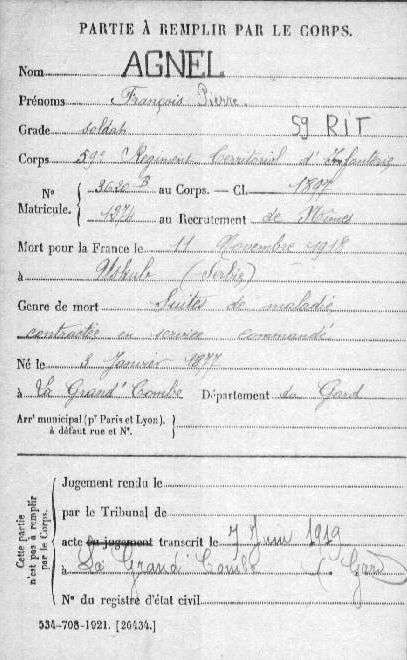 PARTIE À REMPLIR PAR LE CORPS.
Nom AGNEL
Prénoms François Pierre.
Grade soldat 59 RIT
Corps 59e Régiment Territorial d'Infanterie
N° Matricule. { 3020 B au Corps. — Cl. 1897
1974 au Recrutement de Nîmes
Mort pour la France le 11 Novembre 1918
à Uskub (Serbie)
Genre de mort Suites de maladie
contractée en service commandé
Né le 3 Janvier 1877
à La Grand' Combe Département du Gard
Arrt municipal (pr Paris et Lyon), à défaut rue et N°. }
Cette partie n'est pas à remplir par le Corps.
Jugement rendu le
par le Tribunal de
acte du jugement transcrit le 7 Juin 1919
à La Grand' Combe (Gard)
N° du registre d'état civil
534-708-1921. [26434.]